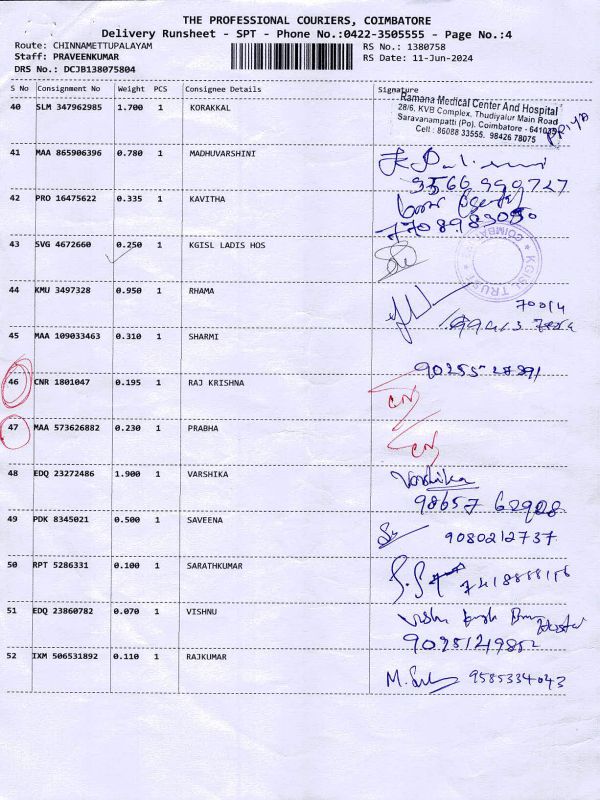 THE PROFESSIONAL COURIERS, COIMBATORE
Delivery Runsheet - SPT - Phone No.:0422-3505555 - Page No.:4
Route: CHINNAMETTUPALAYAM RS No.: 1380758
Staff: PRAVEENKUMAR RS Date: 11-Jun-2024
DRS No.: DCJB138075804
S No Consignment No Weight PCS Consignee Details Signature
40 SLM 347962985 1.700 1 KORAKKAL
Ramana Medical Center And Hospital
28/6, KVB Complex, Thudiyalur Main Road
Saravanampatti (Po). Coimbatore - 641035
Cell : 86088 33555. 98426 78075
41 MAA 865906396 0.780 1 MADHUVARSHINI
9566 990727
42 PRO 16475622 0.335 1 KAVITHA
7708983050
43 SVG 4672660 0.250 1 KGISL LADIS HOS
KGISL TRUST COIMBATORE
44 KMU 3497328 0.950 1 RHAMA
45 MAA 109033463 0.310 1 SHARMI
46 CNR 1801047 0.195 1 RAJ KRISHNA CN
47 MAA 573626882 0.230 1 PRABHA CN
48 EDQ 23272486 1.900 1 VARSHIKA Varshika
98657 62928
49 PDK 8345021 0.500 1 SAVEENA 9080212737
50 RPT 5286331 0.100 1 SARATHKUMAR
51 EDQ 23860782 0.070 1 VISHNU
52 IXM 506531892 0.110 1 RAJKUMAR 9585334043